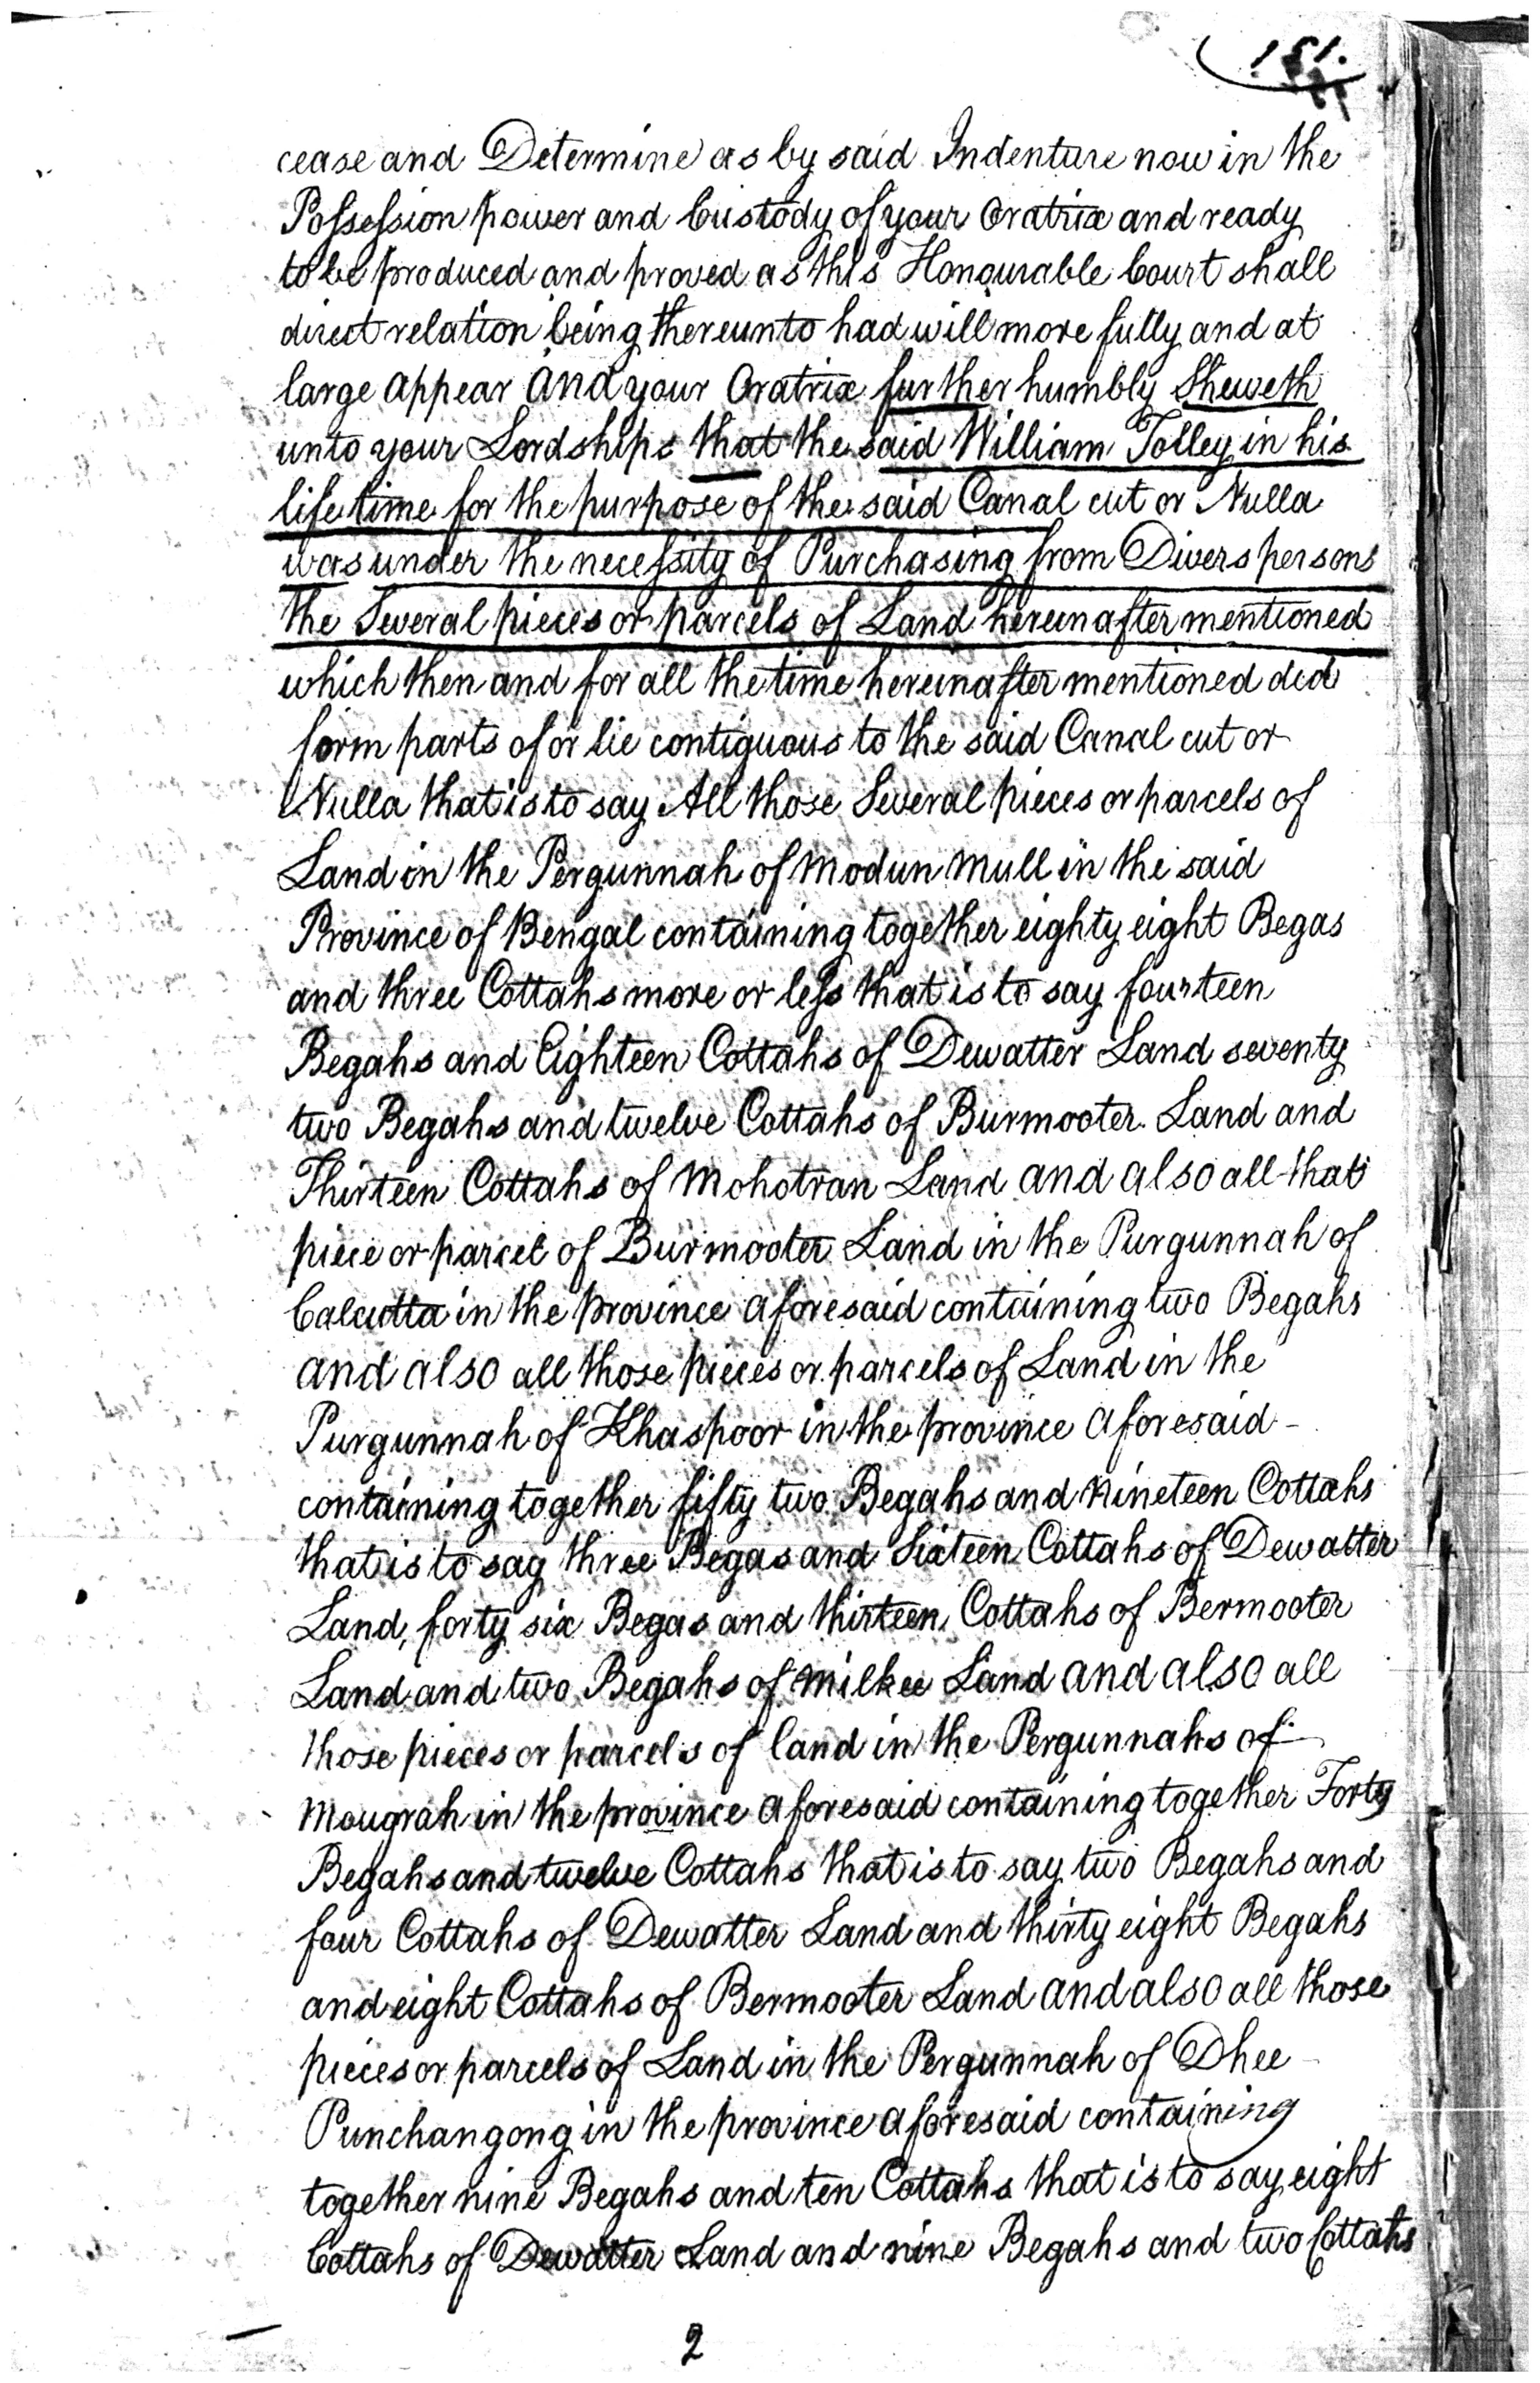 151.
cease and Determine as by said Indenture now in the
Possession power and Custody of your Oratrix and ready
to be produced and proved as this Honourable Court shall
direct relation being thereunto had will more fully and at
large appear And your Oratrix further humbly Sheweth
unto your Lordships that the said William Tolley in his
life time for the purpose of the said Canal cut or Nulla
was under the necessity of Purchasing from Divers persons
the Several pieces or parcels of Land hereinafter mentioned
which then and for all the time hereinafter mentioned did
form parts of or lie contiguous to the said Canal cut or
Nulla that is to say All those Several pieces or parcels of
Land in the Pergunnah of Modun Mull in the said
Province of Bengal containing together eighty eight Begas
and three Cottahs more or less that is to say fourteen
Begahs and Eighteen Cottahs of Dewatter Land seventy
two Begahs and twelve Cottahs of Burmooter Land and
Thirteen Cottahs of Mohotran Land and also all that
piece or parcel of Burmooter Land in the Purgunnah of
Calcutta in the province aforesaid containing two Begahs
and also all those pieces or parcels of Land in the
Purgunnah of Khaspoor in the province aforesaid -
containing together fifty two Begahs and Nineteen Cottahs
that is to say three Begas and Sixteen Cottahs of Dewatter
Land, forty six Begas and thirteen Cottahs of Bermooter
Land and two Begahs of Milkee Land and also all
those pieces or parcels of land in the Pergunnahs of
Mougrah in the province aforesaid containing together Forty
Begahs and twelve Cottahs that is to say two Begahs and
four Cottahs of Dewatter Land and thirty eight Begahs
and eight Cottahs of Bermooter Land and also all those
pieces or parcels of Land in the Pergunnah of Dhee -
Punchangong in the province aforesaid containing
together nine Begahs and ten Cottahs that is to say eight
Cottahs of Dewatter Land and nine Begahs and two Cottahs
2